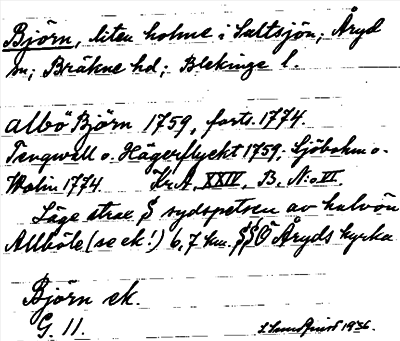 Björn, liten holme i Saltsjön; Åryd
sn; Bräkne hd; Blekinge l.
albö Björn 1759, forts. 1774.
Tengwall o. Hägerflyckt 1759; Sjöbohm o.
Wolin 1774. Kr.A. XXIV, B, N:o VI.
Läge strax S sydspetsen av halvön
Allböle (se ek!) 6,7 km. SSO Åryds kyrka
Björn ek.
G. 11.
1936.